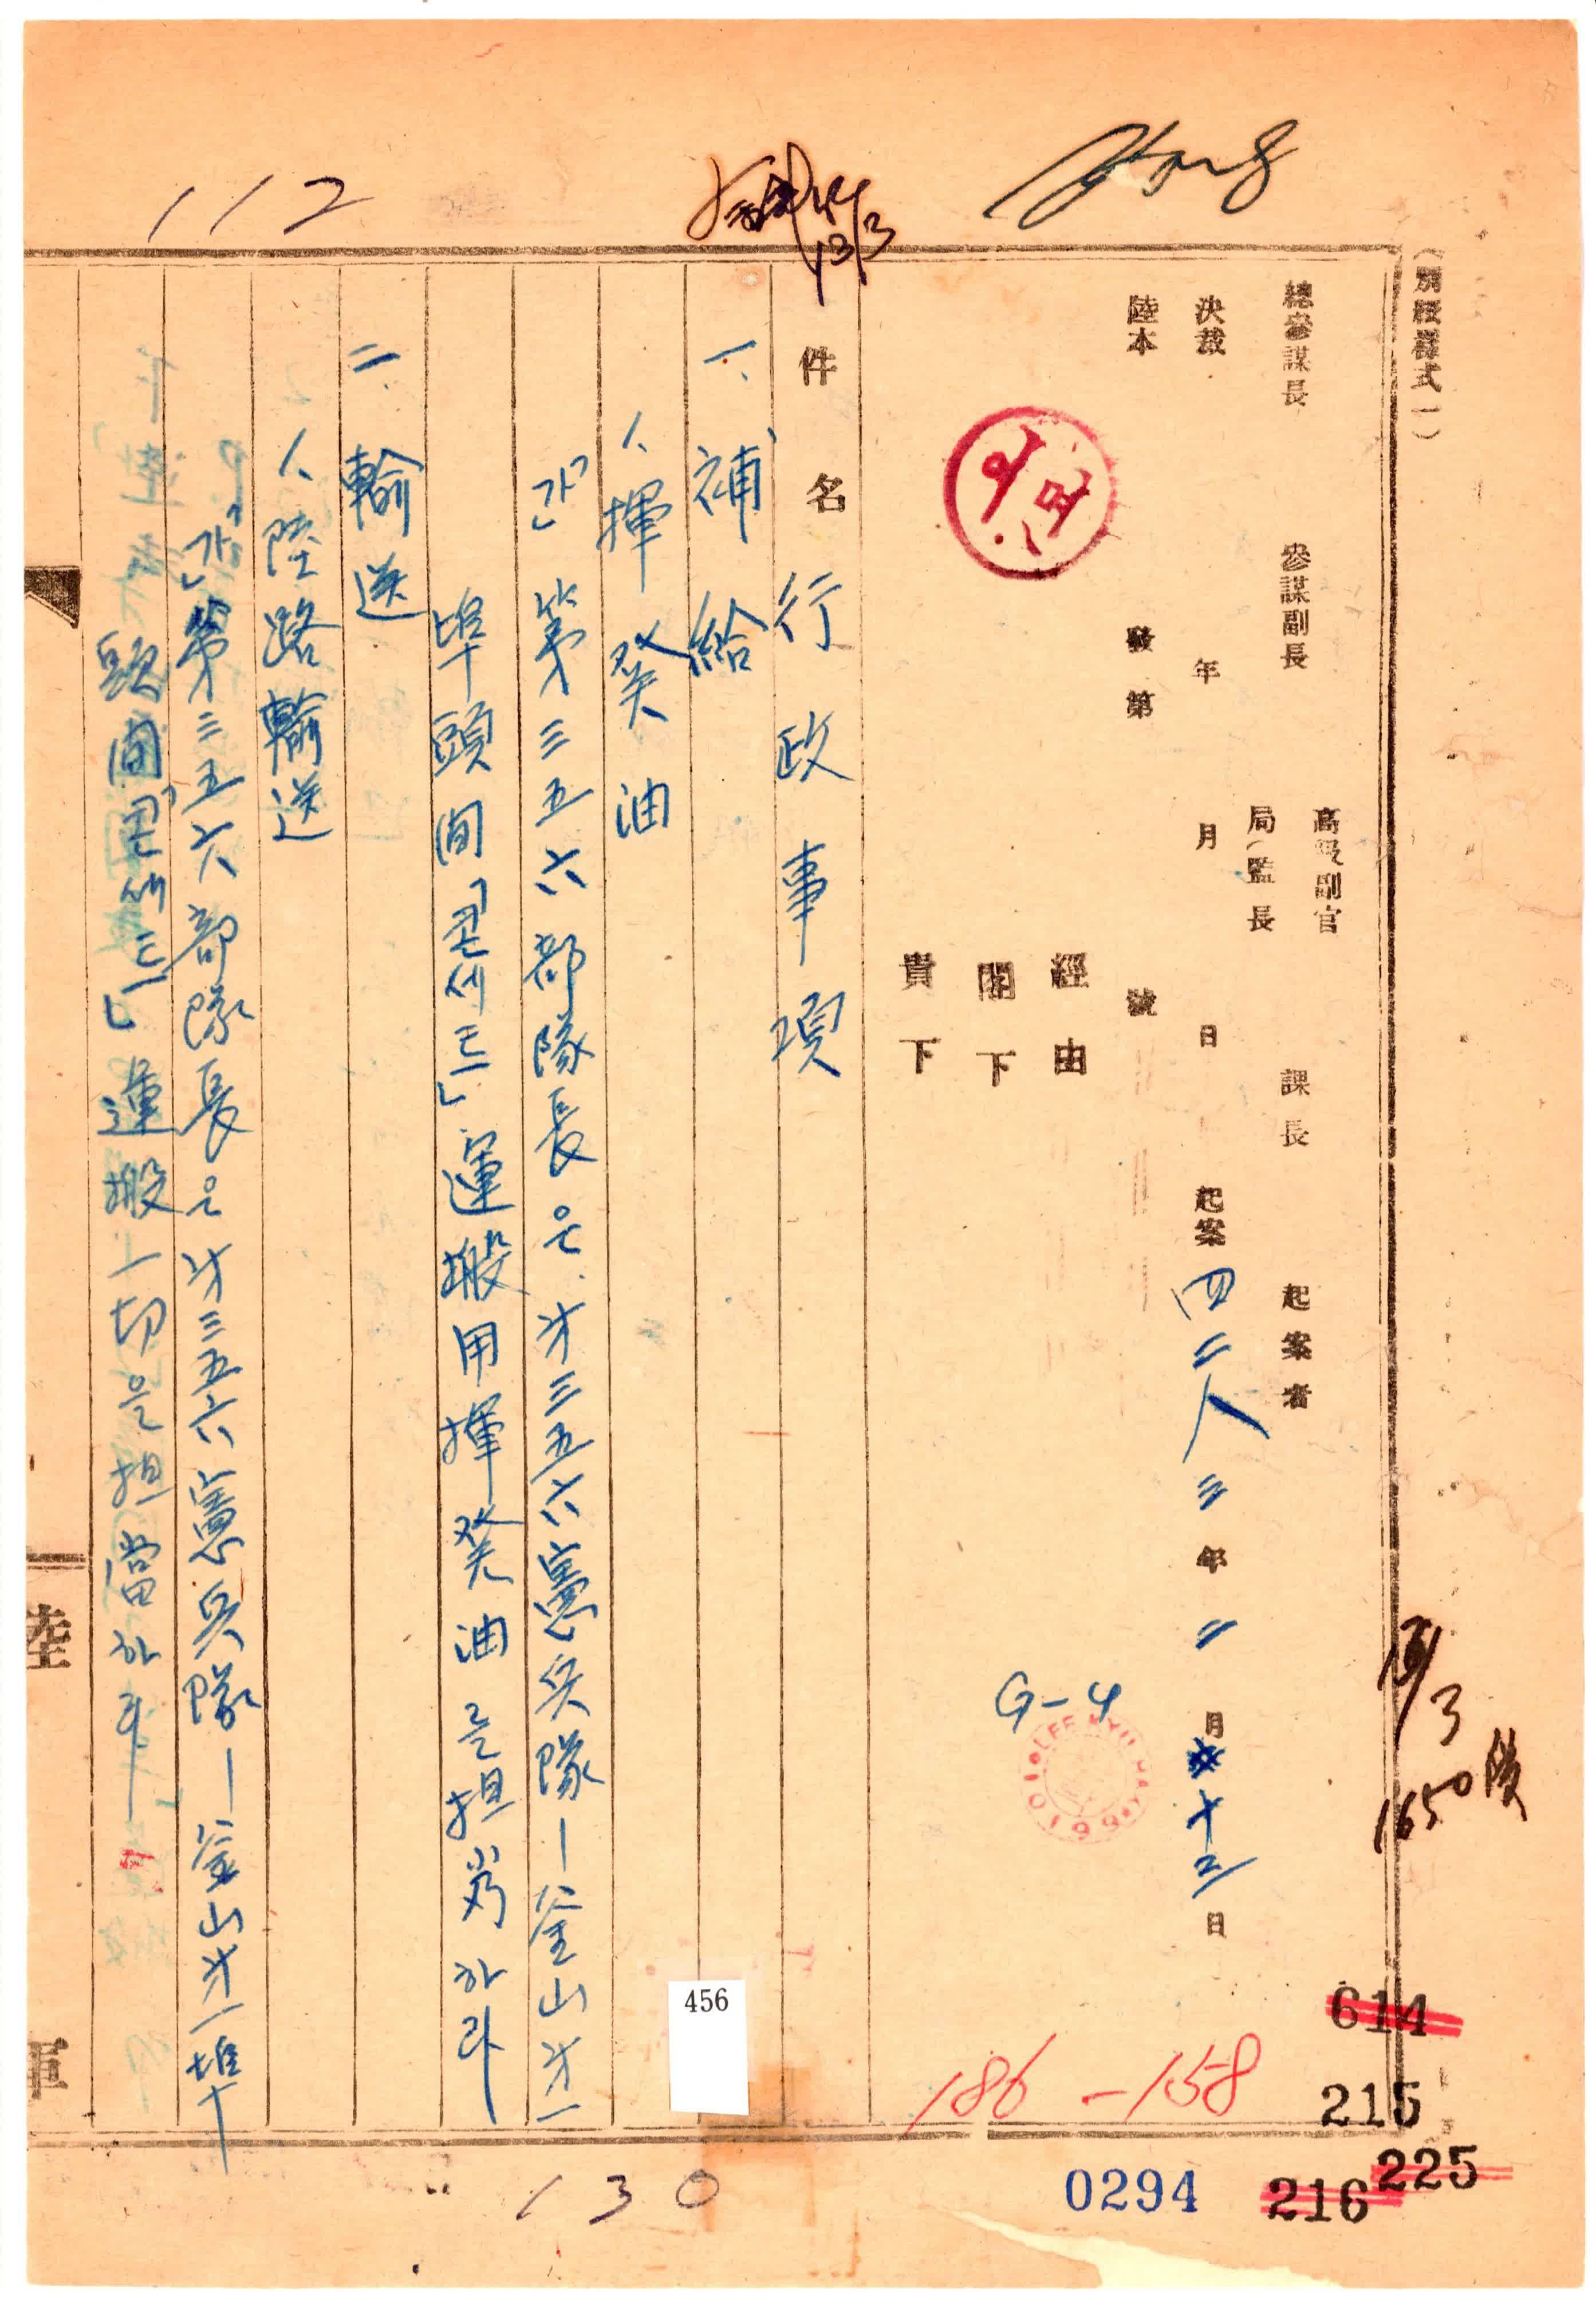 (別紙樣式一)
總參謀長 參謀副長 高級副官 局(監)長 課長 起案者
決裁 年 月 日 起案 四二八三年二月十三日
陸本 發第 號
G-4
經由
閣下
貴下
件名 行政事項
一、補給
1、揮發油
「가」第三五六部隊長은 第三五六憲兵隊—釜山第一
埠頭間「콘세트」運搬用揮發油를担當하라
二、輸送
1、陸路輸送
「가」第三五六部隊長은 第三五六憲兵隊—釜山第一埠
頭間「콘세트」運搬一切을担當하라
陸
軍
112
13/3
1650
456
186-158
614
215
225
216
0294
130